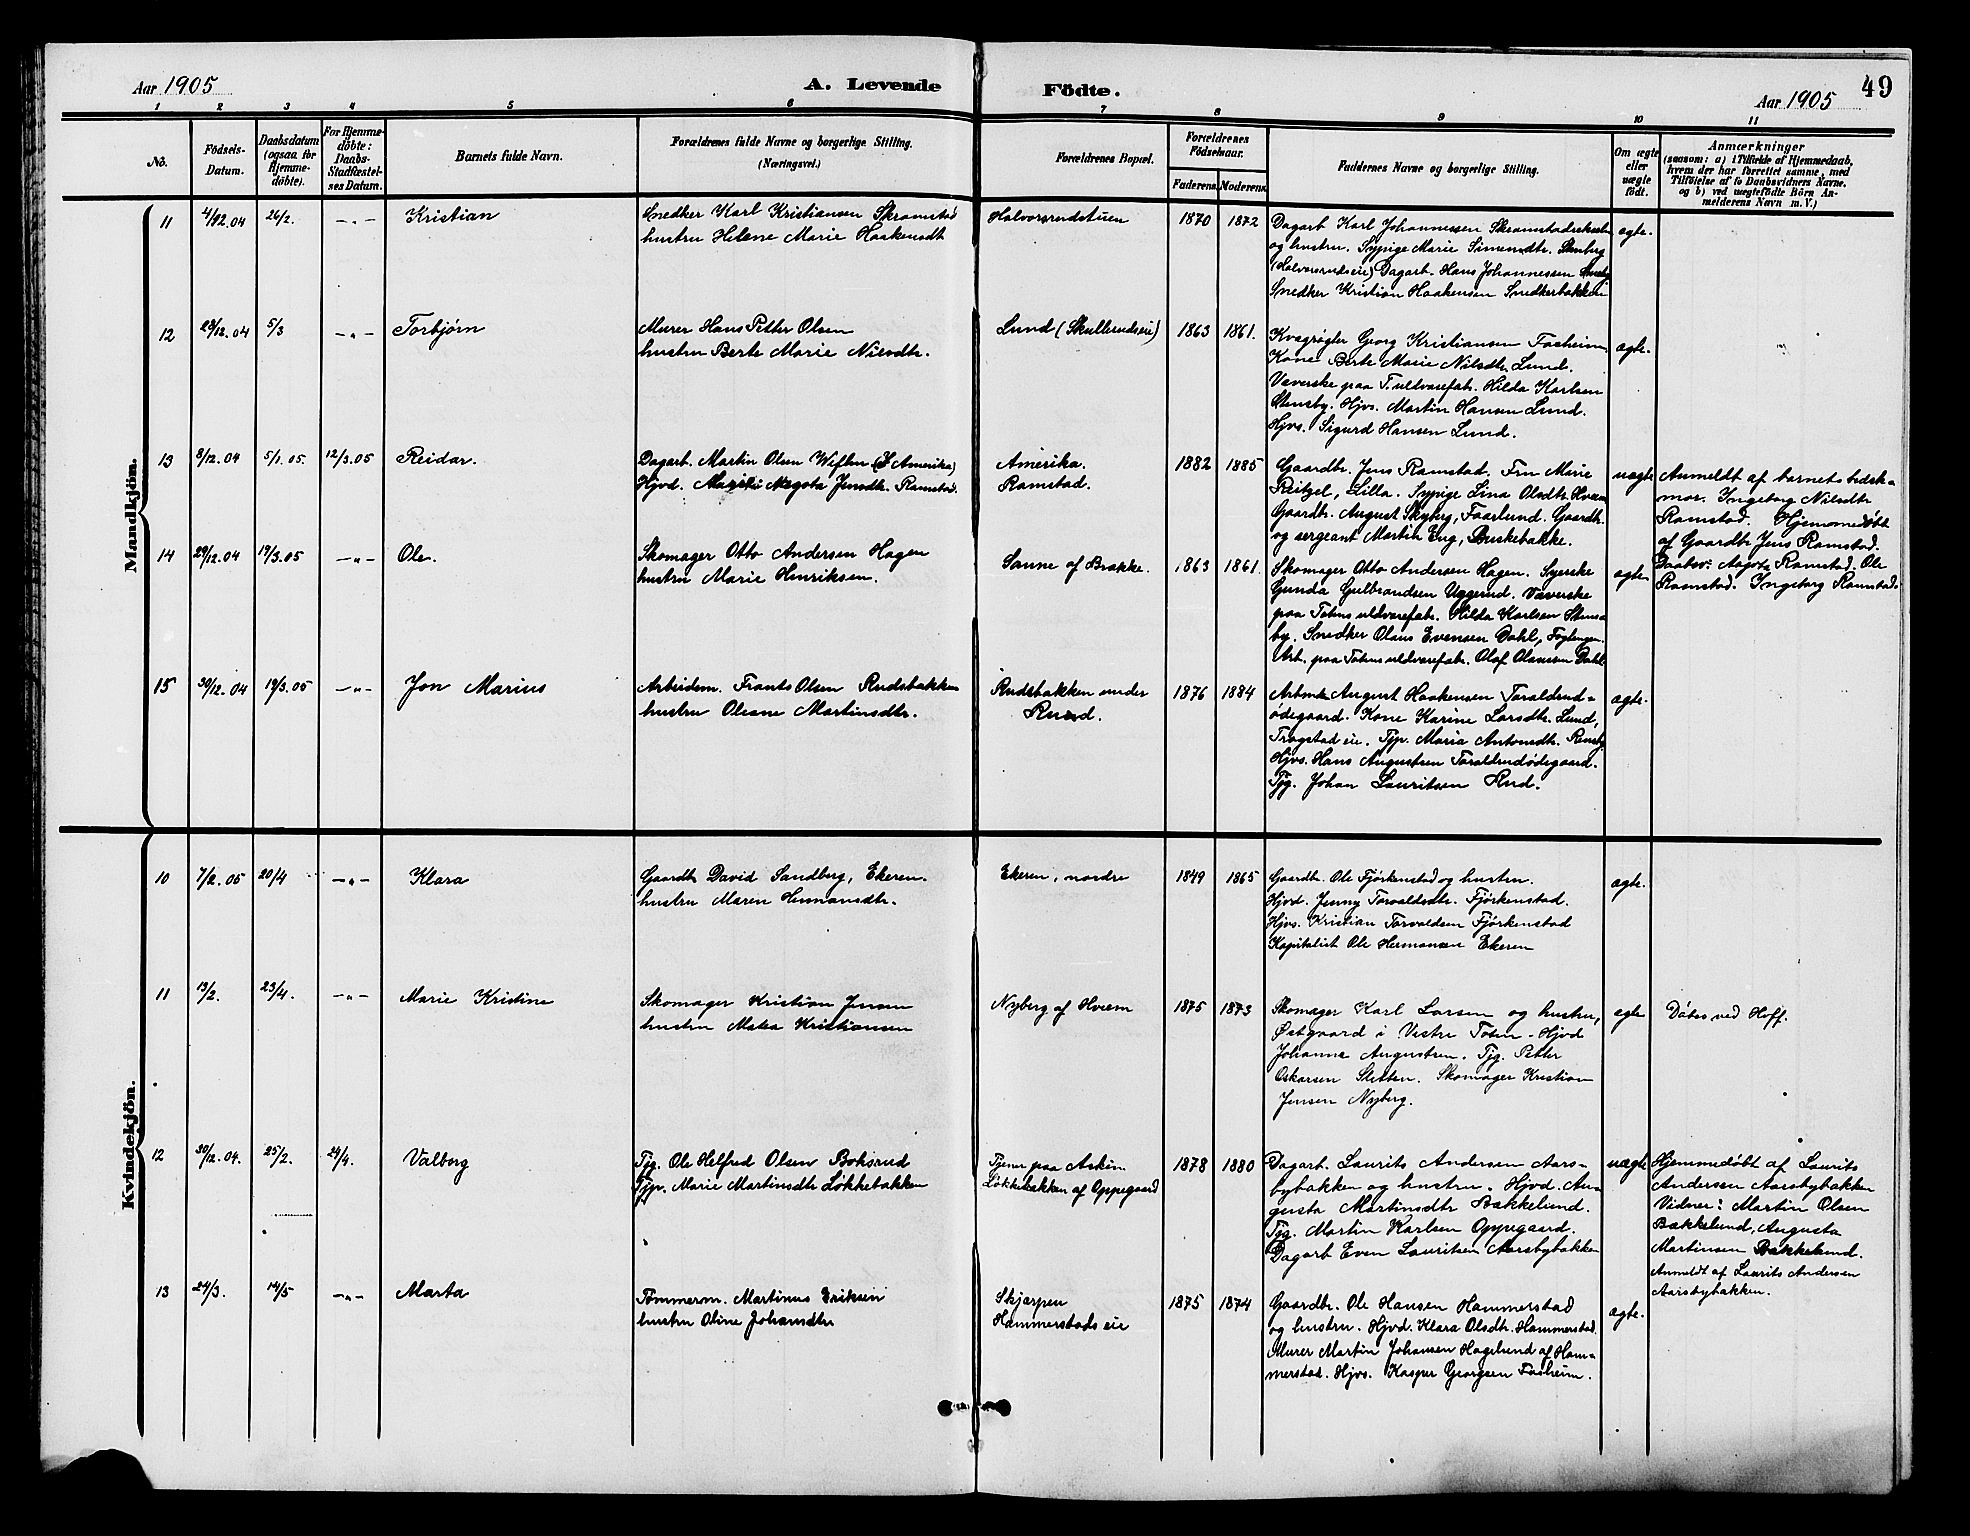 Aar 1905
A. Levende
Födte.
Aar 1905
49
1 2 3 4 5 6 7 8 9 10 11
No.
Födsels-
Datum.
Daabsdatum
(ogsaa for
Hjemme-
döbte).
For Hjemme-
döbte:
Daabs-
Stadfæstel-
ses Datum.
Barnets fulde Navn.
Forældrenes fulde Navne og borgerlige Stilling.
(Næringsvei.)
Forældrenes Bopæl.
Forældrenes
Födselsaar.
Faderens. Moderens.
Faddernes Navne og borgerlige Stilling.
Om ægte
eller
uægte
födt.
Anmærkninger
(saasom: a) i Tilfælde af Hjemmedaab,
hvem der har forrettet samme, med
Tilföielse af to Daabsvidners Navne,
og b) ved uegtefödte Börn An-
melderens Navn m. V.)
Mandkjön.
11
4/12.04
26/2.
-„-
Kristian
Snedker Karl Kristiansen Skramstad
hustru Helene Marie Haakensdt
Halvorsrudstuen
1870
1872
Dagarb Karl Johannessen
og hustru. Sypige Marie Simensdtr. Stenberg
(Halvorsrudseie) Dagarb. Hans Johannessen
Snedker Kristian Haakensen Snedkerbakken
ægte.
12
29/12.04
5/3
-„-
Torbjørn
Murer Hans Petter Olsen
hustru Berte Marie Nilsdtr.
Lund (Skullerudseie)
1863
1861.
Kvægrøgter Georg Kristiansen Fosheim
Kone Berte Marie Nilsdtr. Lund.
Væverske paa T. uldvarefab. Hilda Karlsen
Stensby. Hjvs. Martin Hansen Lund.
Hjvs. Sigurd Hansen Lund.
ægte.
13
8/12.04
5/1.05.
12/3.05
Reidar.
Dagarb. Martin Olsen (I Amerika)
Hjvd. Agota Jensdtr. Ramstad.
Amerika.
Ramstad.
1882
1885
Gaardbr. Jens Ramstad. Fru Marie
Reitzel, Lilla. Sypige Lina Olsdtr Hveem
Gaardbr. August Skyberg, Faarlund. Gaardbr.
og sergeant Martin Eng, Buskebakke.
uægte
Anmeldt af barnets bedste-
mor. Ingeborg Nilsdtr
Ramstad. Hjemmedøbt
af Gaardbr Jens Ramstad.
Daabsv: Agota Ramstad. Ole
Ramstad. Ingeborg Ramstad.
14
29/12.04
19/3.05
-„-
Ole.
Skomager Otto Andersen Hagen
hustru Marie Henriksen.
Sanne af Brække.
1863
1861.
Skomager Otto Andersen Hagen. Syerske
Gunda Gulbrandsen Uggerud. Væverske
paa Totens uldvarefab. Hilda Karlsen Stens-
by. Snedker Olaus Evensen Dahl, Foglengen.
Arb. paa Totens uldvarefab. Olaf Olaussen Dahl
ægte
15
30/12.04
19/3.05
-„-
Jon Marius
Arbeidsm. Frants Olsen Rudsbakken
hustru Oleane Martinsdtr.
Rudsbakken under
Ruud.
1876
1884
Arbmd. August Haakensen Toralsrud-
ødegaard. Kone Karine Larsdtr. Lund,
Trogstad eie. Tjp. Maria Antonsdtr. Rensby
Hjvs. Hans Augustsen Toralsrudødegaard.
Tjg. Johan Lauritsen Rud.
ægte.
Kvindekjön.
10
7/2.05
20/4
-„-
Klara
Gaardb. David Sandberg, Ekeren.
hustru Maren Hermansdtr.
Ekeren, nordre
1849
1865
Gaardbr. Ole Fjørkenstad og hustru.
Hjvd. Jenny Torvaldsdtr. Fjørkenstad.
Hjvs. Kristian Torvaldsen Fjørkenstad
Kapitalist Ole Hermansen Ekeren
ægte.
11
13/2.
23/4.
-„-
Marie Kristine
Skomager Kristian Jensen
hustru Matea Kristiansen
Nyberg af Hveem
1875
1873
Skomager Karl Larsen og hustru,
Østgaard i Vestre Toten - Hjvd
Johanna Augustsen. Tjg. Petter
Oskarsen Sletten. Skomager Kristian
Jensen Nyberg.
ægte
Døbes ved Hoff.
12
30/12.04.
25/2.
24/4.
Valborg
Tjg. Ole Helfred Olsen Boksrud
Tjp. Marie Martinsdtr Løkkebakken
Tjener paa Askim
Løkkebakken af Oppegaard
1878
1880
Dagarb. Laurits Andersen Aars-
bybakken og hustru. Hjvd. Au-
gusta Martinsdtr Bakkelund.
Tjg. Martin Karlsen Oppegaard.
Dagarb Even Lauritsen Aarsbybakken
uægte
Hjemmedøbt af Laurits
Andersen Aarsbybakken
Vidner: Martin Olsen
Bakkelund, Augusta
Martinsen Bakkelund.
Anmeldt af Laurits Andersen
Aarsbybakken.
13
24/3.
14/5
-„-
Marta
Tømmerm. Martinus Eriksen
hustru Oline Johansdtr
Skjærpen
Hammerstads eie
1875
1874
Gaardbr. Ole Hansen Hammerstad
og hustru. Hjvd. Klara Olsdtr. Hammerstad.
Murer Martin Johansen Hagelund af Ham-
merstad. Hjvs. Kasper Georgsen Fosheim.
ægte.